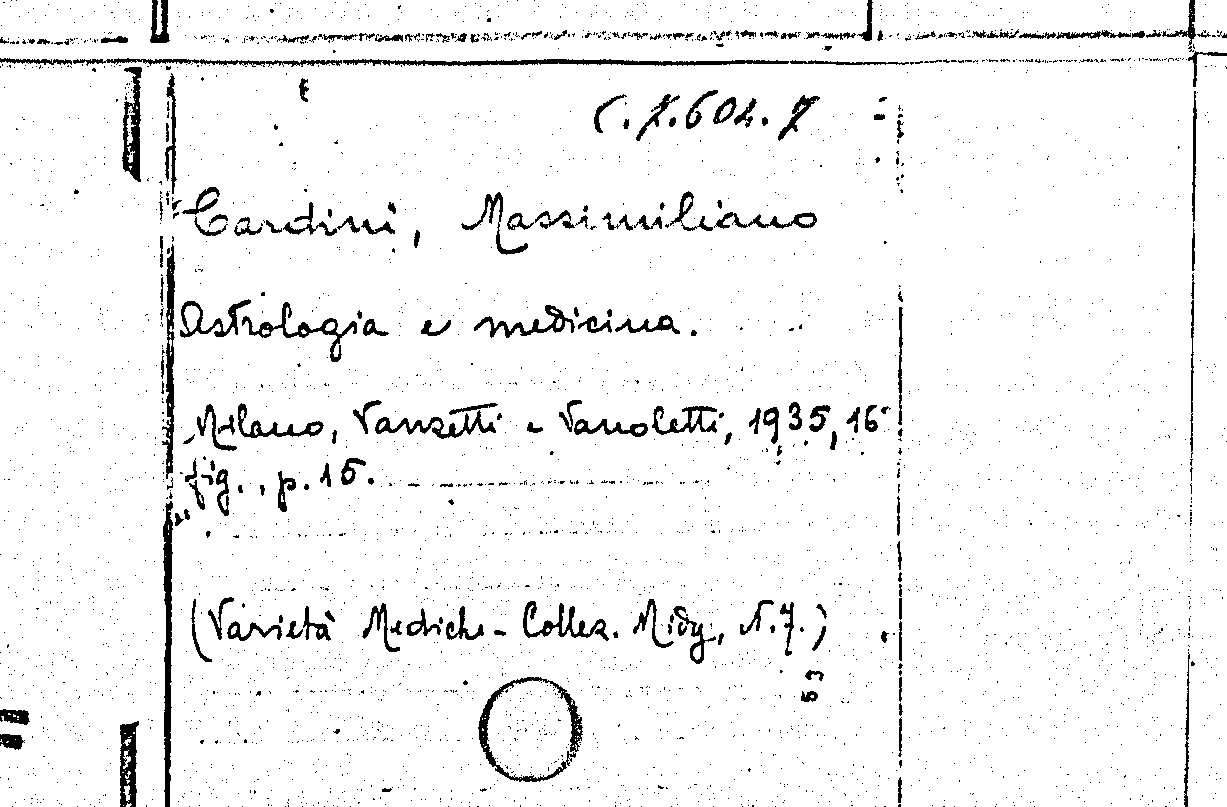 C.7.604.7
Cardini, Massimiliano
Astrologia e medicina.
Milano, Vanzetti e Vanoletti, 1935, 16°
fig., p. 15.
(Varietà Mediche - Collez. Midy, N.7.)
53